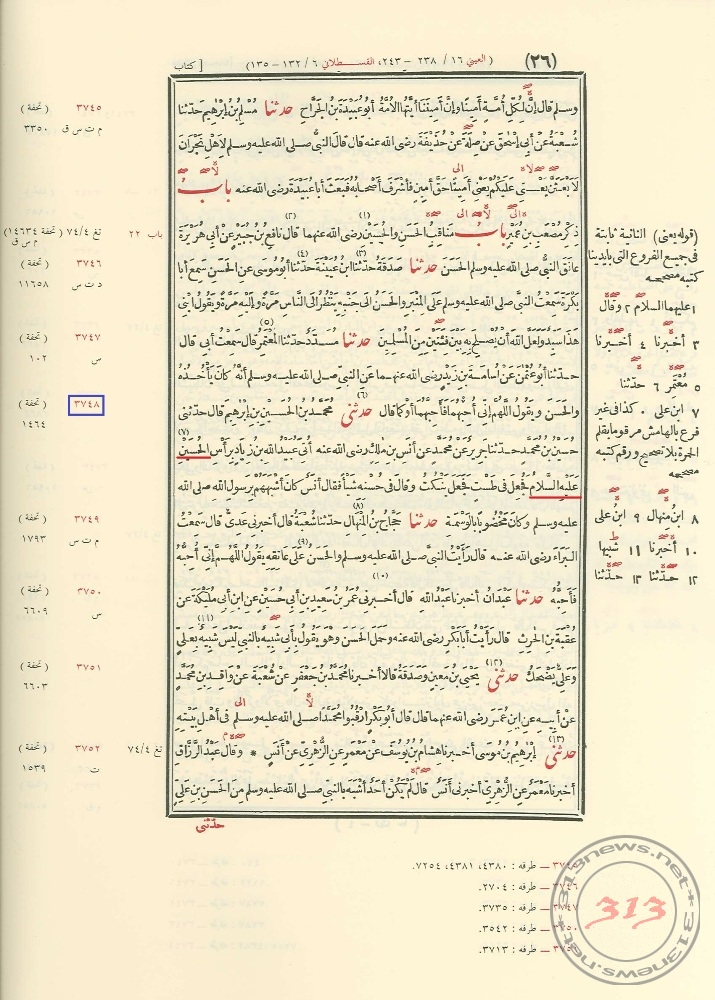 (٢٦)
( العيني ١٦ / ٢٣٨ – ٢٤٣، القسطلاني ٦ / ١٣٢ – ١٣٥ )
[ كتاب
وسلم قال إنّ لكلّ أمّة أمينا وإنّ أميننا أيّتها الأمّة أبو عبيدة بن الجرّاح حدثنا مسلم بن إبرهيم حدّثنا
شعبة عن أبى إسحق عن صلة عن حذيفة رضى الله عنه قال قال النبىّ صلى الله عليه وسلم لأهل نجران
لأبعثنّ يعنى عليكم يعنى أمينا حقّ أمين فأشرف أصحابه فبعث أبا عبيدة رضى الله عنه باب
ذكر مصعب بن عمير باب مناقب الحسن والحسين (١) رضى الله عنهما (٢) قال نافع بن جبير عن أبى هريرة
عانق النبىّ صلى الله عليه وسلم الحسن حدثنا صدقة (٣) حدّثنا ابن عيينة (٤) حدّثنا أبو موسى عن الحسن سمع أبا
بكرة سمعت النبىّ صلى الله عليه وسلم على المنبر والحسن إلى جنبه ينظر إلى النّاس مرّة وإليه مرّة ويقول ابنى
هذا سيّد ولعلّ الله أن يصلح به بين فئتين من المسلمين حدثنا مسدّد حدّثنا المعتمر (٥) قال سمعت أبى قال
حدّثنا أبو عثمن عن أسامة بن زيد رضى الله عنهما عن النبىّ صلى الله عليه وسلم أنّه كان يأخذه
والحسن ويقول اللّهمّ إنّى أحبّهما فأحبّهما أو كما قال حدثنى (٦) محمّد بن الحسين بن إبرهيم قال حدّثنى
حسين بن محمّد حدّثنا جرير عن محمّد عن أنس بن ملك رضى الله عنه أتى عبيد الله بن زياد برأس الحسين (٧)
عليه السّلام فجعل فى طست فجعل ينكت وقال فى حسنه شيأ فقال أنس كان أشبههم برسول الله صلى الله
عليه وسلم وكان مخضوبا بالوسمة حدثنا حجّاج بن المنهال (٨) حدّثنا شعبة قال أخبرنى عدىّ قال سمعت
البراء رضى الله عنه قال رأيت النبىّ صلى الله عليه وسلم والحسن (٩) على عاتقه يقول اللّهمّ إنّى أحبّه
فأحبّه حدثنا عبدان أخبرنا عبد الله (١٠) قال أخبرنى عمر بن سعيد بن أبى حسين عن ابن أبى مليكة عن
عقبة بن الحرث قال رأيت أبا بكر رضى الله عنه وحمل الحسن وهو يقول بأبى شبيه بالنبىّ ليس شبيه (١١) بعلىّ
وعلىّ يضحك حدثنى (١٢) يحيى بن معين وصدقة قالا أخبرنا محمّد بن جعفر عن شعبة عن واقد بن محمّد
عن أبيه عن ابن عمر رضى الله عنهما قال قال أبو بكر ارقبوا محمّدا صلى الله عليه وسلم فى أهل بيته
حدثنى (١٣) إبرهيم بن موسى أخبرنا هشام بن يوسف عن معمر عن الزّهرىّ عن أنس * وقال عبد الرّزّاق
أخبرنا معمر عن الزّهرىّ أخبرنى أنس قال لم يكن أحد أشبه بالنبىّ صلى الله عليه وسلم من الحسن بن علىّ
حدّثنى
(قوله يعنى) الثانية ثابتة
فى جميع الفروع التى بايدينا
كتبه مصححه
١ عليهما السلام ٢ وقال
٣ أخبرنا ٤ أخبرنا
٥ معتمر ٦ حدّثنا
٧ ابن على . كذا فى غير
فرع بالهامش مرقوما بقلم
الحمرة بلا تصحيح ورقم كتبه
مصححه
٨ ابن منهال ٩ ابن على
١٠ أخبرنا ١١ شبيها
١٢ حدّثنا ١٣ حدّثنا
٣٧٤٥ ( تحفة )
٣٣٥٠ م ت س ق
باب ٢٢ تغ ٧٤/٤ ( تحفة ١٤٦٣٤ )
م س ق
٣٧٤٦ ( تحفة )
١١٦٥٨ د ت س
٣٧٤٧ ( تحفة )
١٠٢ س
٣٧٤٨ ( تحفة )
١٤٦٤
٣٧٤٩ ( تحفة )
١٧٩٣ م ت س
٣٧٥٠ ( تحفة )
٦٦٠٩ س
٣٧٥١ ( تحفة )
٦٦٠٣
تغ ٧٤/٤ ٣٧٥٢ ( تحفة )
١٥٣٩ ت
٣٧٤٥ – طرفه : ٤٣٨٠، ٤٣٨١، ٧٢٥٤.
٣٧٤٦ – طرفه : ٢٧٠٤.
٣٧٤٧ – طرفه : ٣٧٣٥.
٣٧٥٠ – طرفه : ٣٥٤٢.
٣٧٥١ – طرفه : ٣٧١٣.
313news.net*313news.net*
313